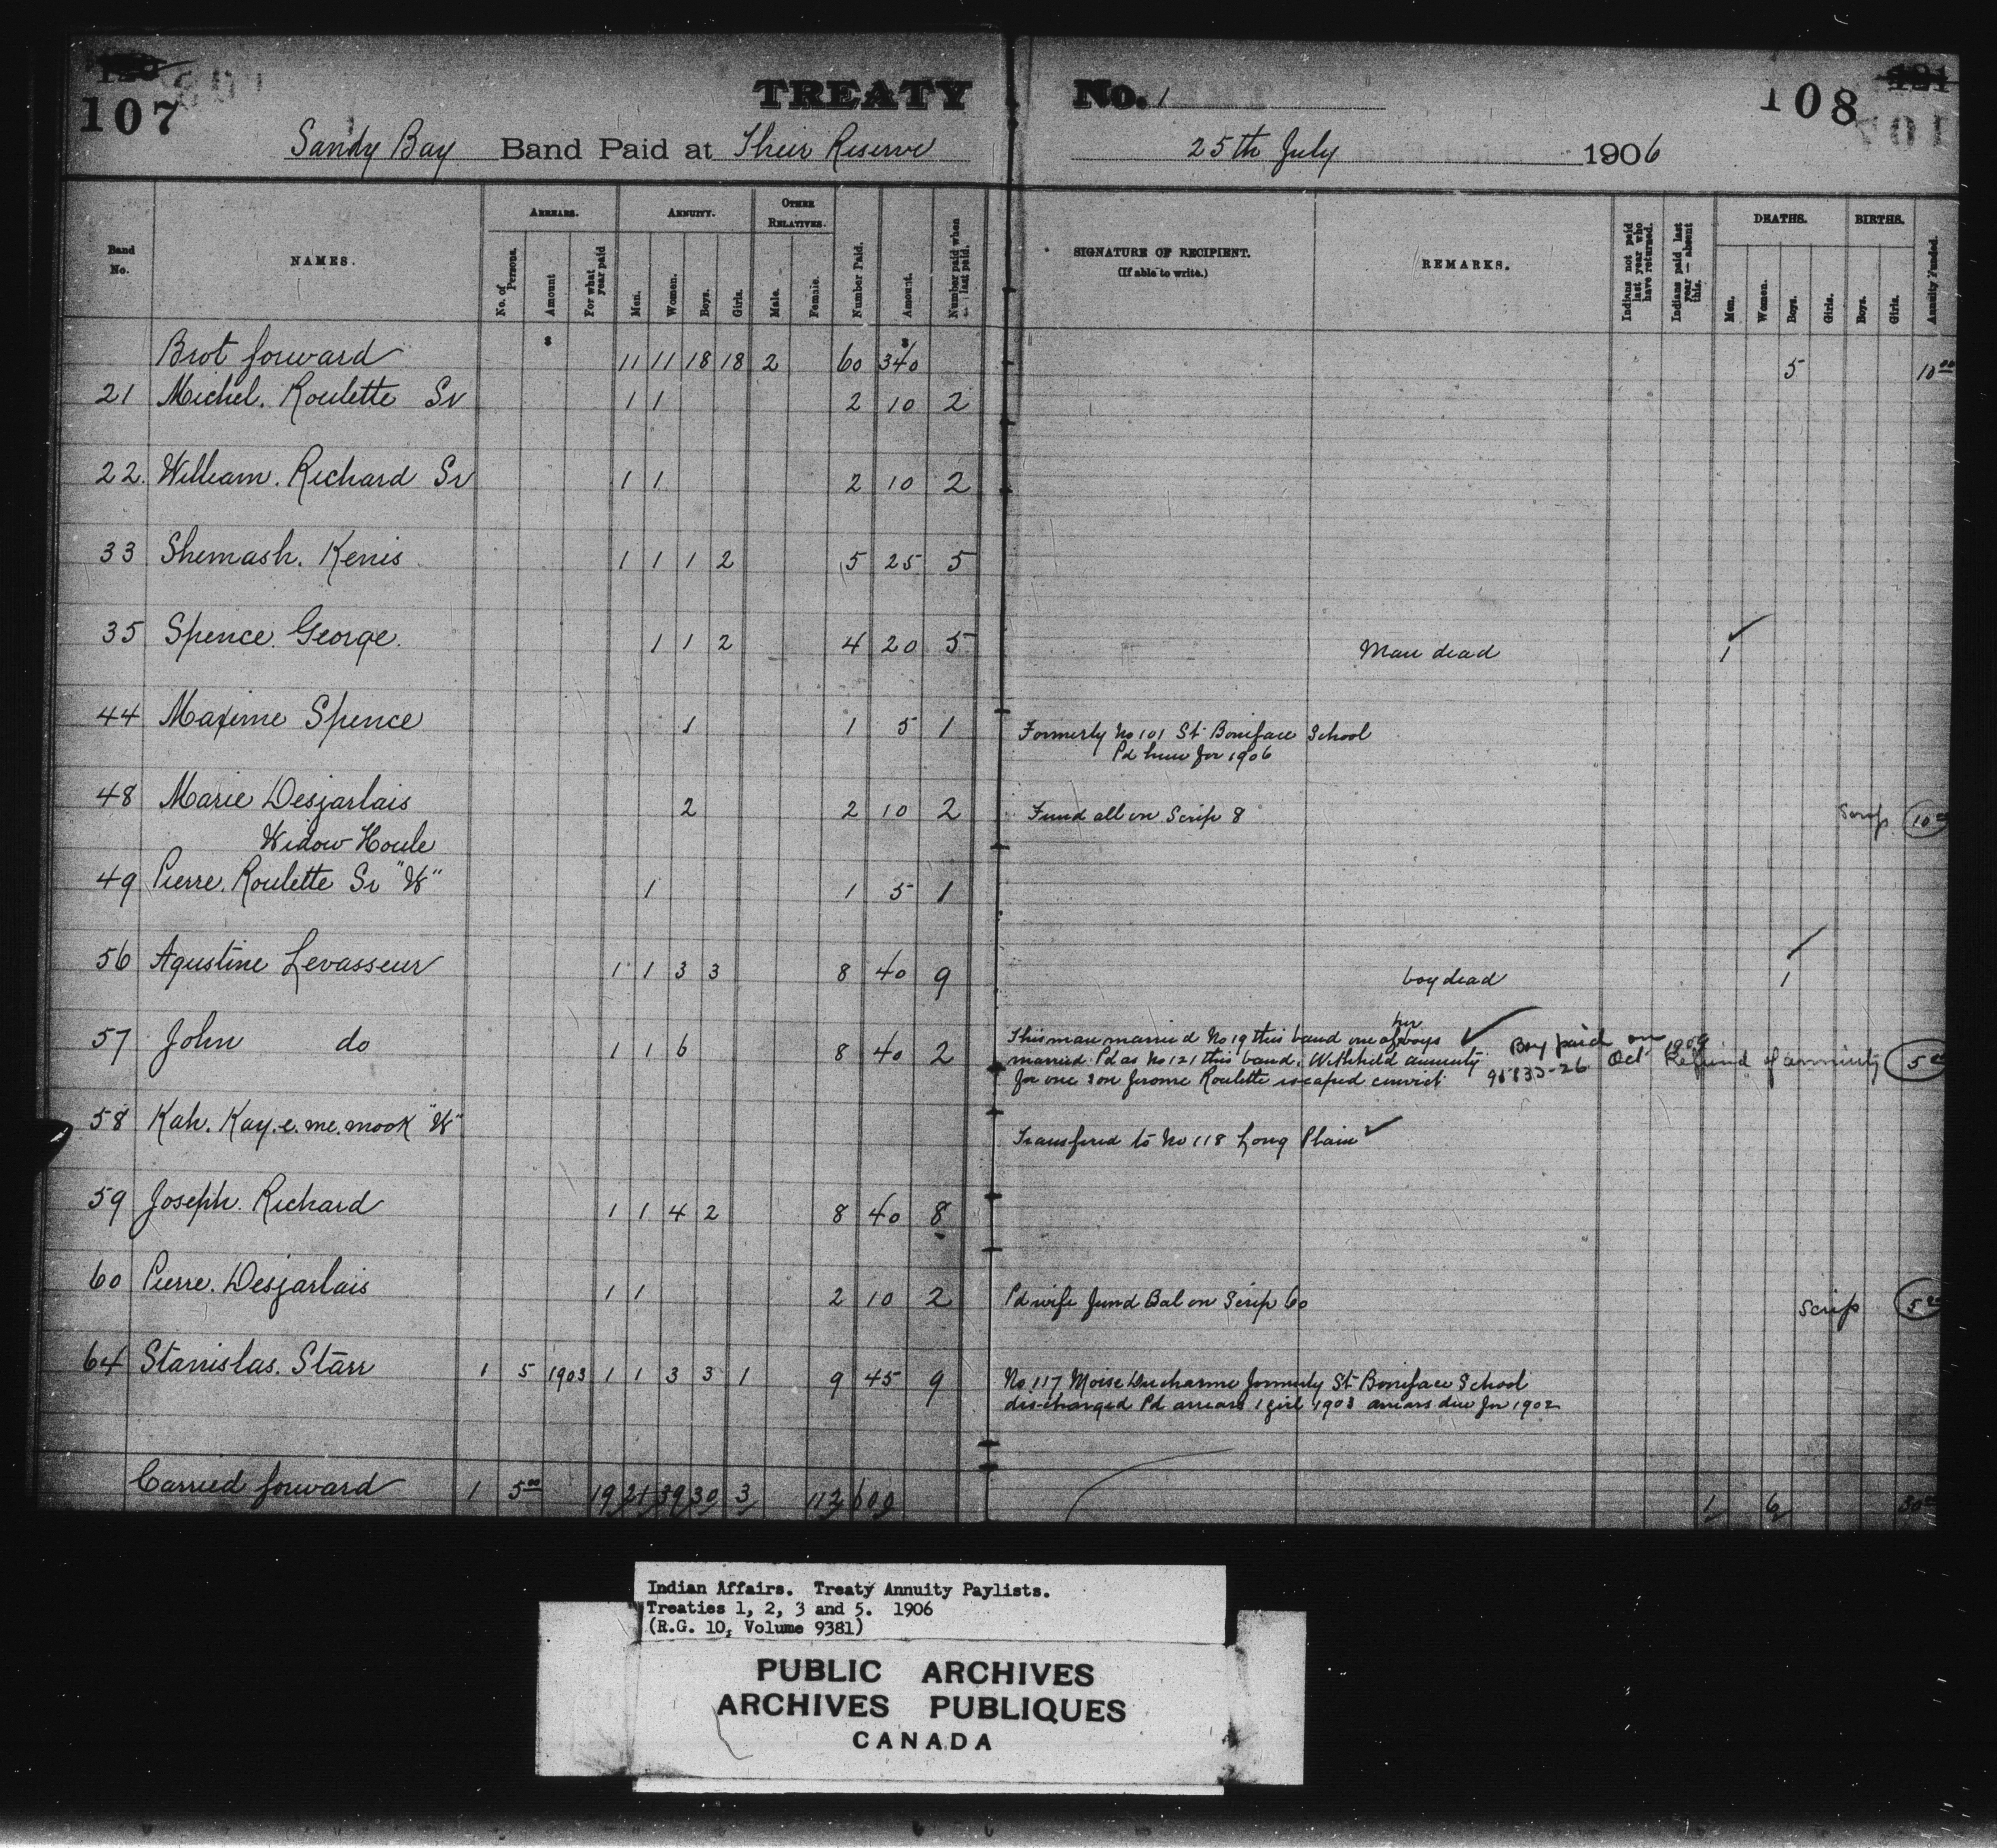 107
TREATY No. 1
108
Sandy Bay Band Paid at Their Reserve 25th July 1906
Band No. NAMES. ARREARS. No. of Persons. Amount For what year paid ANNUITY. Men. Women. Boys. Girls. OTHER RELATIVES. Male. Female. Number Paid. Amount. Number paid when last paid. SIGNATURE OF RECIPIENT. (If able to write.) REMARKS. Indians not paid last year who have returned. Indians paid last year — absent this. DEATHS. Men. Women. Boys. Girls. BIRTHS. Boys. Girls. Annuity Funded.
$ $
Brot forward 11 11 18 18 2 60 340 5 10 00
21 Michel. Roulette Sr 1 1 2 10 2
22. William. Richard Sr 1 1 2 10 2
33 Shemash. Kenis 1 1 1 2 5 25 5
35 Spence. George. 1 1 2 4 20 5 Man dead 1
44 Maxime Spence 1 1 5 1 Formerly No 101 St. Boniface School
Pd here for 1906
48 Marie Desjarlais 2 2 10 2 Fund all on Scrip 8 Scrip 10 00
Widow Houle
49 Pierre. Roulette Sr "W" 1 1 5 1
56 Agustine Levasseur 1 1 3 3 8 40 9 boy dead 1
57 John do 1 1 6 8 40 2 This man married No 19 this band one of her boys
married. Pd as No 121 this band. Withheld annuity
for one son Jerome Roulette escaped convict
Boy paid on Oct 1909 Refund of annuity 5 00
58 Kah. Kay. e. me. mook "W" Transfered to No 118 Long Plain
59 Joseph. Richard 1 1 4 2 8 40 8
60 Pierre. Desjarlais 1 1 2 10 2 Pd wife fund Bal on Scrip 60 Scrip 5 00
64 Stanislas. Starr 1 5 1903 1 1 3 3 1 9 45 9 No. 117 Moise Ducharme formerly St. Boniface School
discharged Pd arrears 1 girl 1903 arrears due for 1902
Carried forward 1 5 00 19 21 39 30 3 112 600 1 6 30 00
Indian Affairs. Treaty Annuity Paylists.
Treaties 1, 2, 3 and 5. 1906
(R.G. 10, Volume 9381)
PUBLIC ARCHIVES
ARCHIVES PUBLIQUES
CANADA